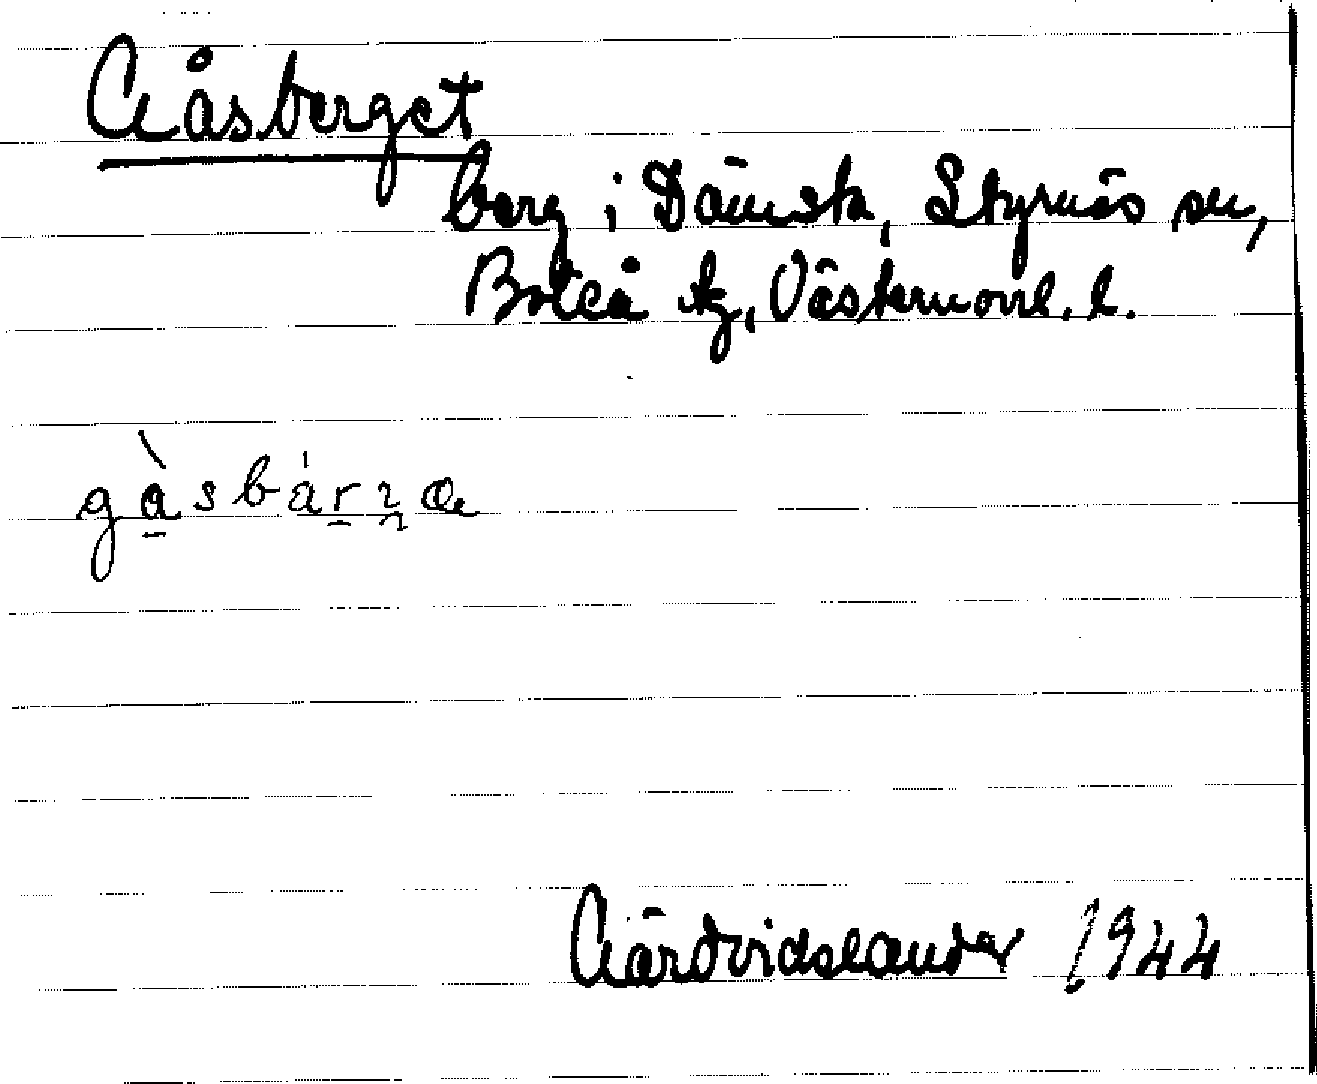 Gåsberget
berg i Dämsta, Styrnäs sn,
Boteå tg, Västernorrl. l.
gàsbárza
Gärdvidslander 1944